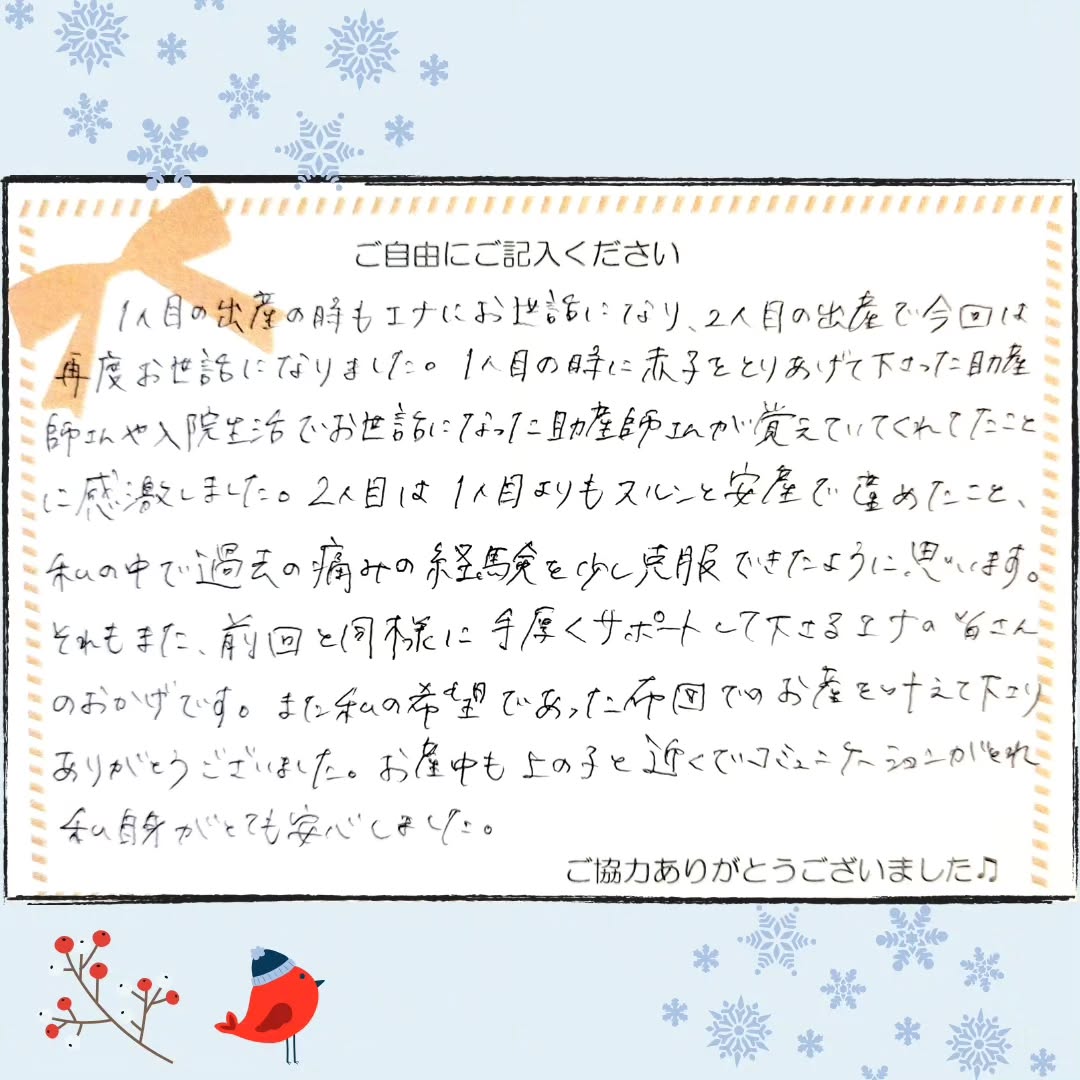 ご自由にご記入ください
1人目の出産の時もエナにお世話になり、2人目の出産で今回は
再度お世話になりました。1人目の時に赤子をとりあげて下さった助産
師さんや入院生活でお世話になった助産師さんが覚えていてくれてたこと
に感激しました。2人目は1人目よりもスルンと安産で産めたこと、
私の中で過去の痛みの経験を少し克服できたように思います。
それもまた、前回と同様に手厚くサポートして下さるエナの皆さん
のおかげです。また私の希望であった布団でのお産を叶えて下さり
ありがとうございました。お産中も上の子と近くでコミュニケーションがとれ
私自身がとても安心しました。
ご協力ありがとうございました♫